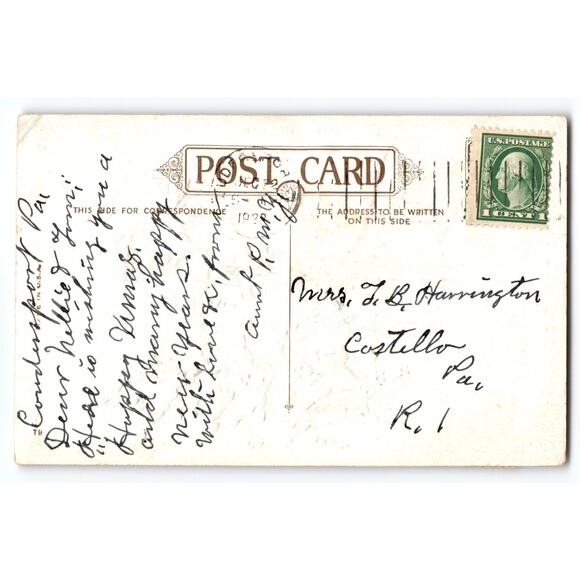 POST CARD
THIS SIDE FOR CORRESPONDENCE
THE ADDRESS TO BE WRITTEN
ON THIS SIDE
U.S. POSTAGE
1 CENT 1
1923
Coudersport Pa,
Dear Nellie &
Here is wishing you a
Happy Xmas.
and many happy
new years.
with love &c, from
Aunt
Mrs, L. B. Harrington
Costello
Pa,
R. 1